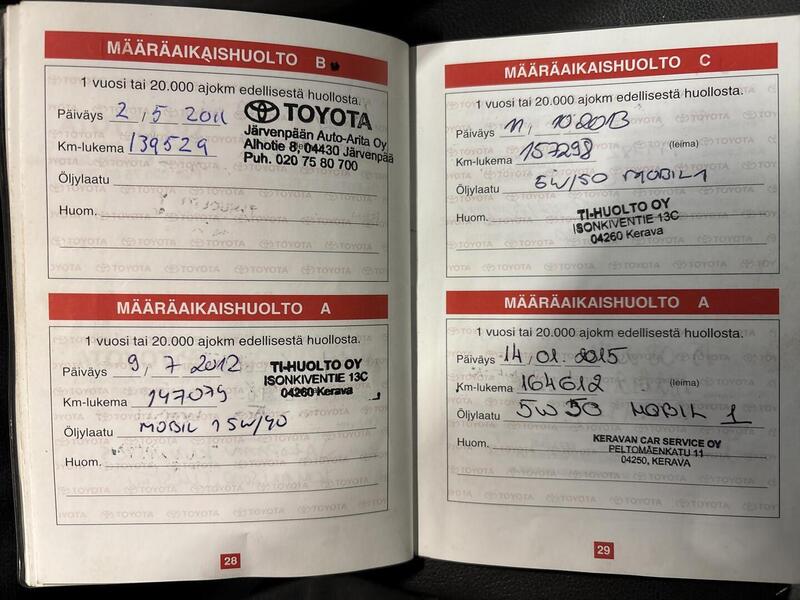 MÄÄRÄAIKAISHUOLTO B
1 vuosi tai 20.000 ajokm edellisestä huollosta.
Päiväys 2 / 5 2011
TOYOTA
Järvenpään Auto-Arita Oy
Km-lukema 139529
Alhotie 8, 04430 Järvenpää
Puh. 020 75 80 700
Öljylaatu
Huom.
MÄÄRÄAIKAISHUOLTO A
1 vuosi tai 20.000 ajokm edellisestä huollosta.
Päiväys 9, 7 2012
TI-HUOLTO OY
ISONKIVENTIE 13C
04260 Kerava
Km-lukema 147079
Öljylaatu MOBIL 1 5W/40
Huom.
28
MÄÄRÄAIKAISHUOLTO C
1 vuosi tai 20.000 ajokm edellisestä huollosta.
Päiväys 11, 10 2013
Km-lukema 157298 (leima)
Öljylaatu 5W/50 MOBIL 1
Huom.
TI-HUOLTO OY
ISONKIVENTIE 13C
04260 Kerava
MÄÄRÄAIKAISHUOLTO A
1 vuosi tai 20.000 ajokm edellisestä huollosta.
Päiväys 14, 01. 2015
Km-lukema 164612 (leima)
Öljylaatu 5W50 MOBIL 1
Huom.
KERAVAN CAR SERVICE OY
PELTOMÄENKATU 11
04250, KERAVA
29